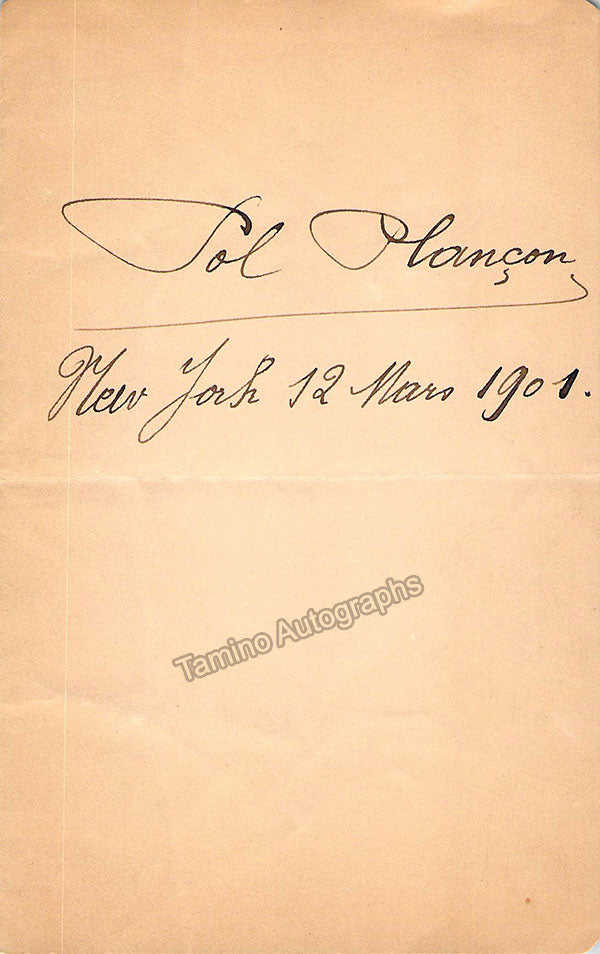 Pol Plançon
New York 12 Mars 1901.
Tamino Autographs